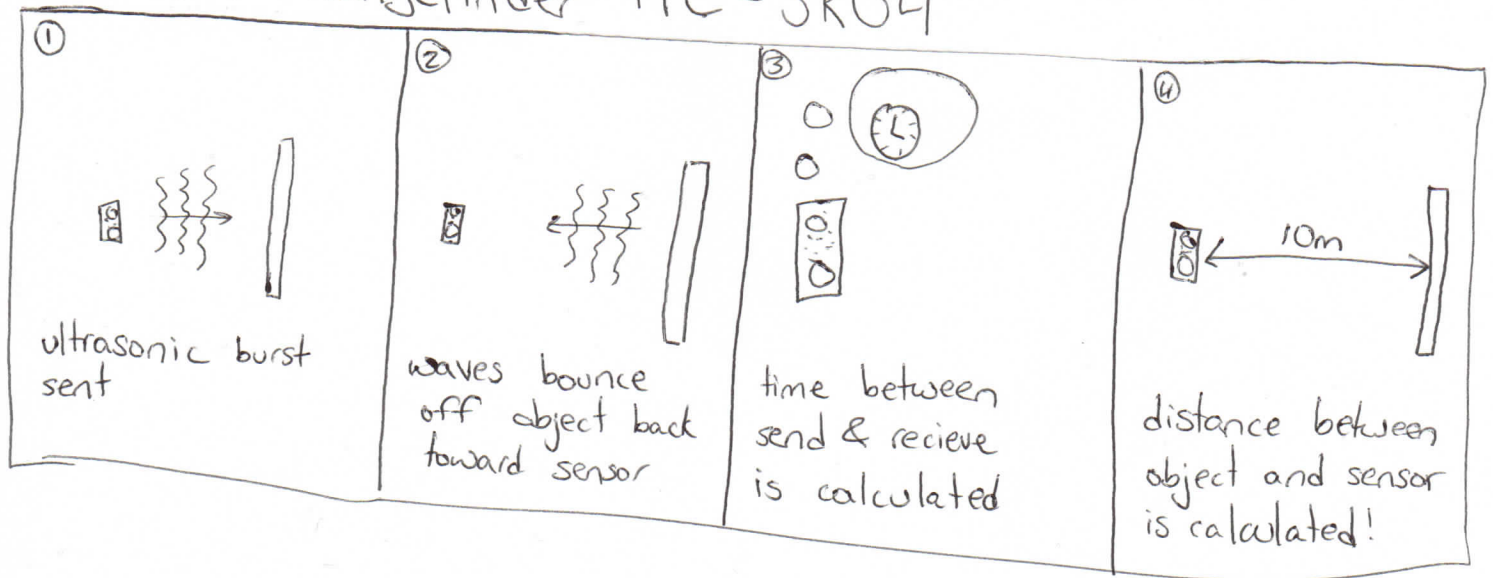 HC-SR04
①
ultrasonic burst
sent
②
waves bounce
off object back
toward sensor
③
time between
send & recieve
is calculated
④
10m
distance between
object and sensor
is calculated!